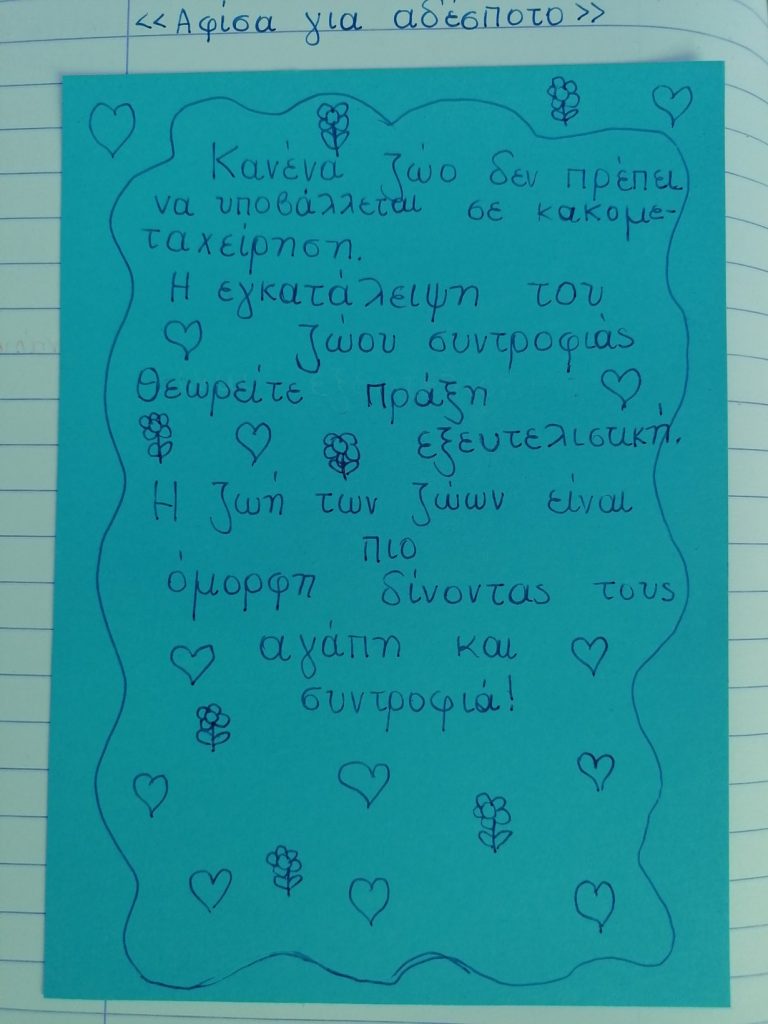 <<Αφίσα για αδέσποτο>>
Κανένα ζώο δεν πρέπει
να υποβάλλεται σε κακομε-
ταχείρηση.
Η εγκατάλειψη του
ζώου συντροφιάς
Θεωρείτε πράξη
εξευτελιστική.
Η ζωή των ζώων είναι
πιο
όμορφη δίνοντας τους
αγάπη και
συντροφιά!